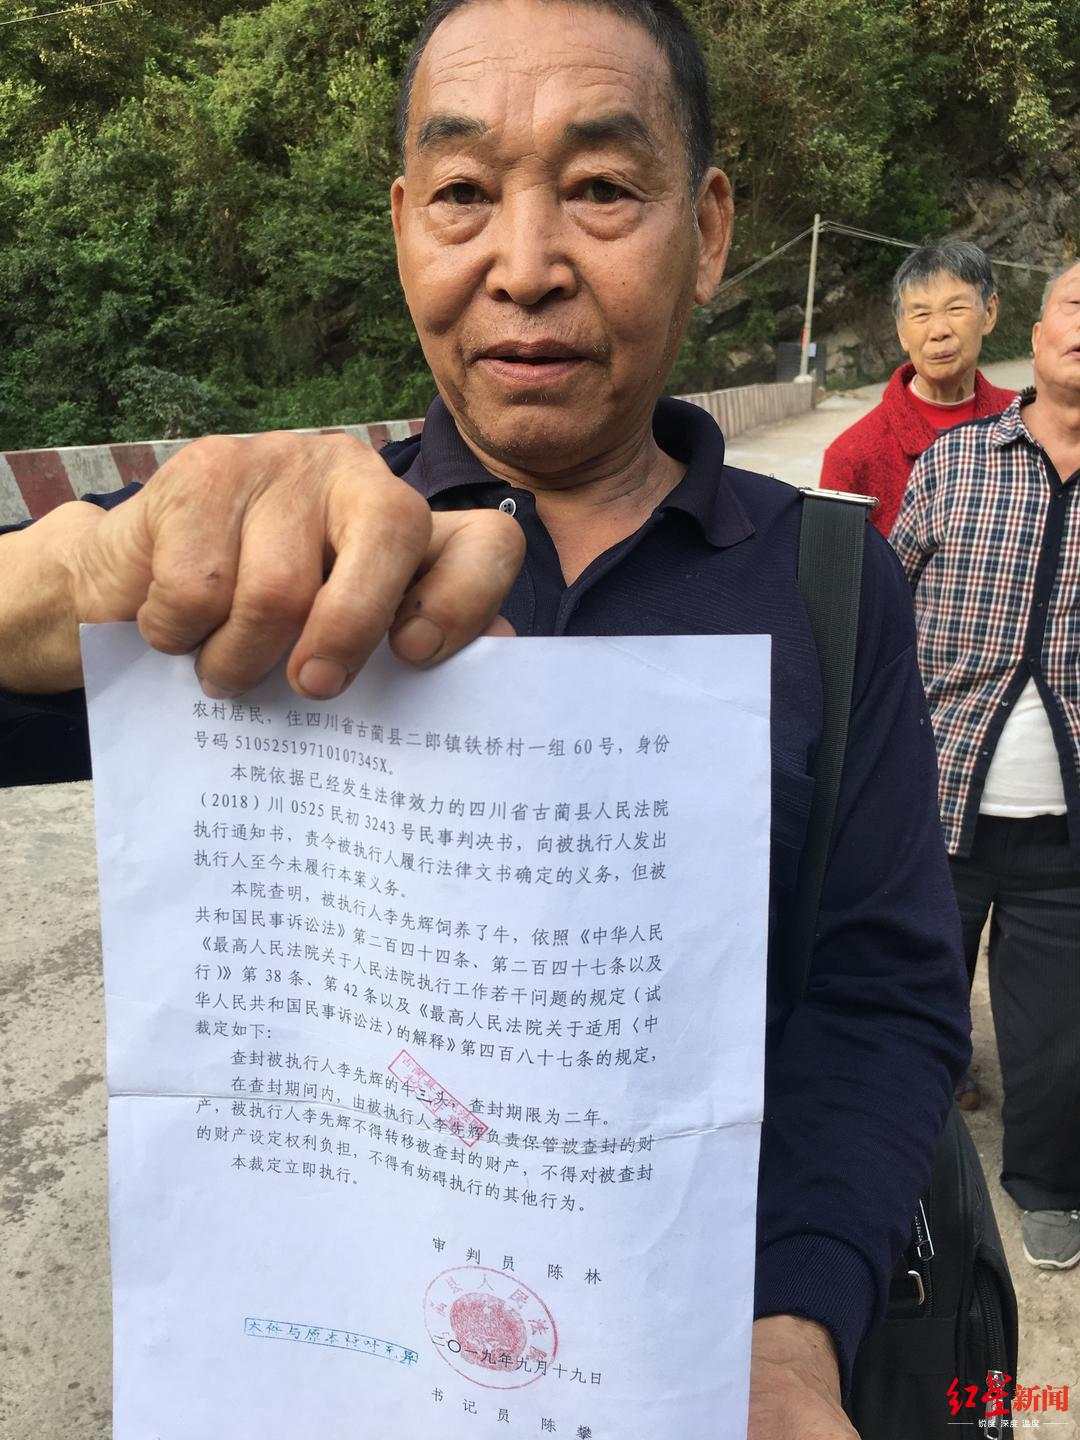 农村居民，住四川省古蔺县二郎镇铁桥村一组60号，身份
号码51052519710107345X。
本院依据已经发生法律效力的四川省古蔺县人民法院
（2018）川0525民初3243号民事判决书，向被执行人发出
执行通知书，责令被执行人履行法律文书确定的义务，但被
执行人至今未履行本案义务。
本院查明，被执行人李先辉饲养了牛，依照《中华人民
共和国民事诉讼法》第二百四十四条、第二百四十七条以及
《最高人民法院关于人民法院执行工作若干问题的规定（试
行）》第38条、第42条以及《最高人民法院关于适用〈中
华人民共和国民事诉讼法〉的解释》第四百八十七条的规定，
裁定如下：
查封被执行人李先辉的牛三头，查封期限为二年。
在查封期间内，由被执行人李先辉负责保管被查封的财
产，被执行人李先辉不得转移被查封的财产，不得对被查封
的财产设定权利负担，不得有妨碍执行的其他行为。
本裁定立即执行。
审判员 陈林
县人民法院
二〇一九年九月十九日
本件与原本核对无异
书记员 陈攀
红星新闻
锐度 深度 温度